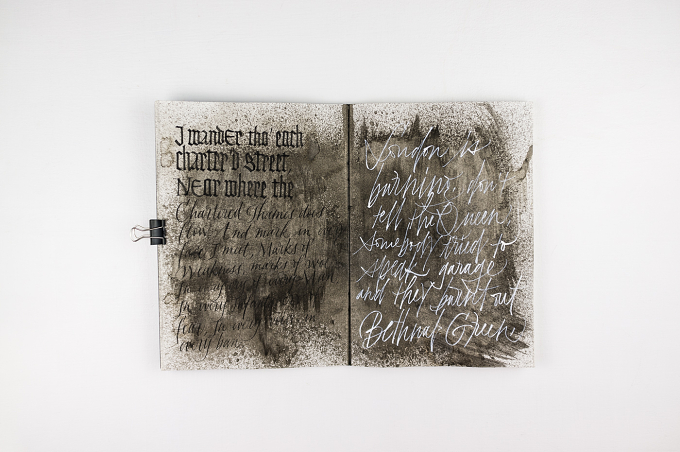 I wander tho' each
charter'd street
Near where the
Chartered Thames does
flow And mark in every
face I meet, Marks of
Weakness marks of woe
In every
In every
fear, In every
every ban
London is
burning, don't
tell the Queen,
Somebody tried to
speak garage
and they burnt out
Bethnal Green